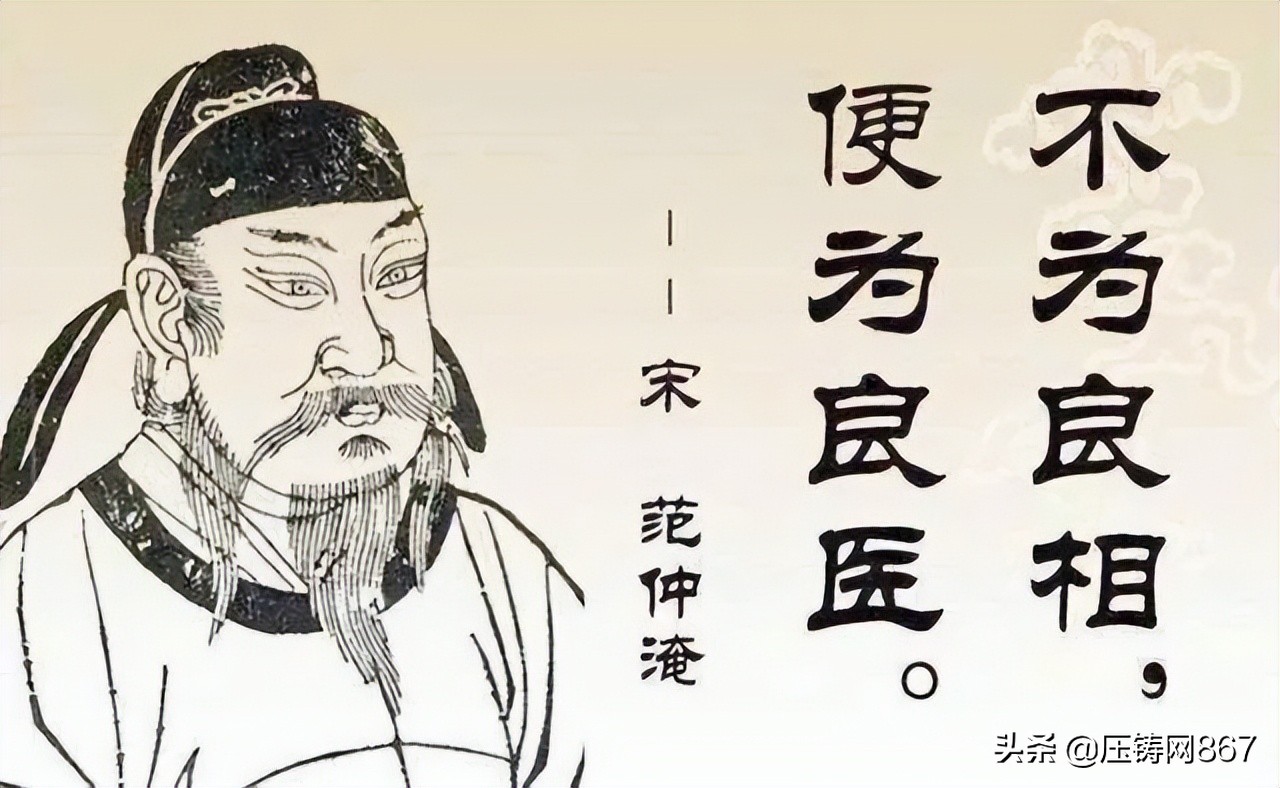 不为良相，
便为良医。
——宋 范仲淹
头条 @压铸网867